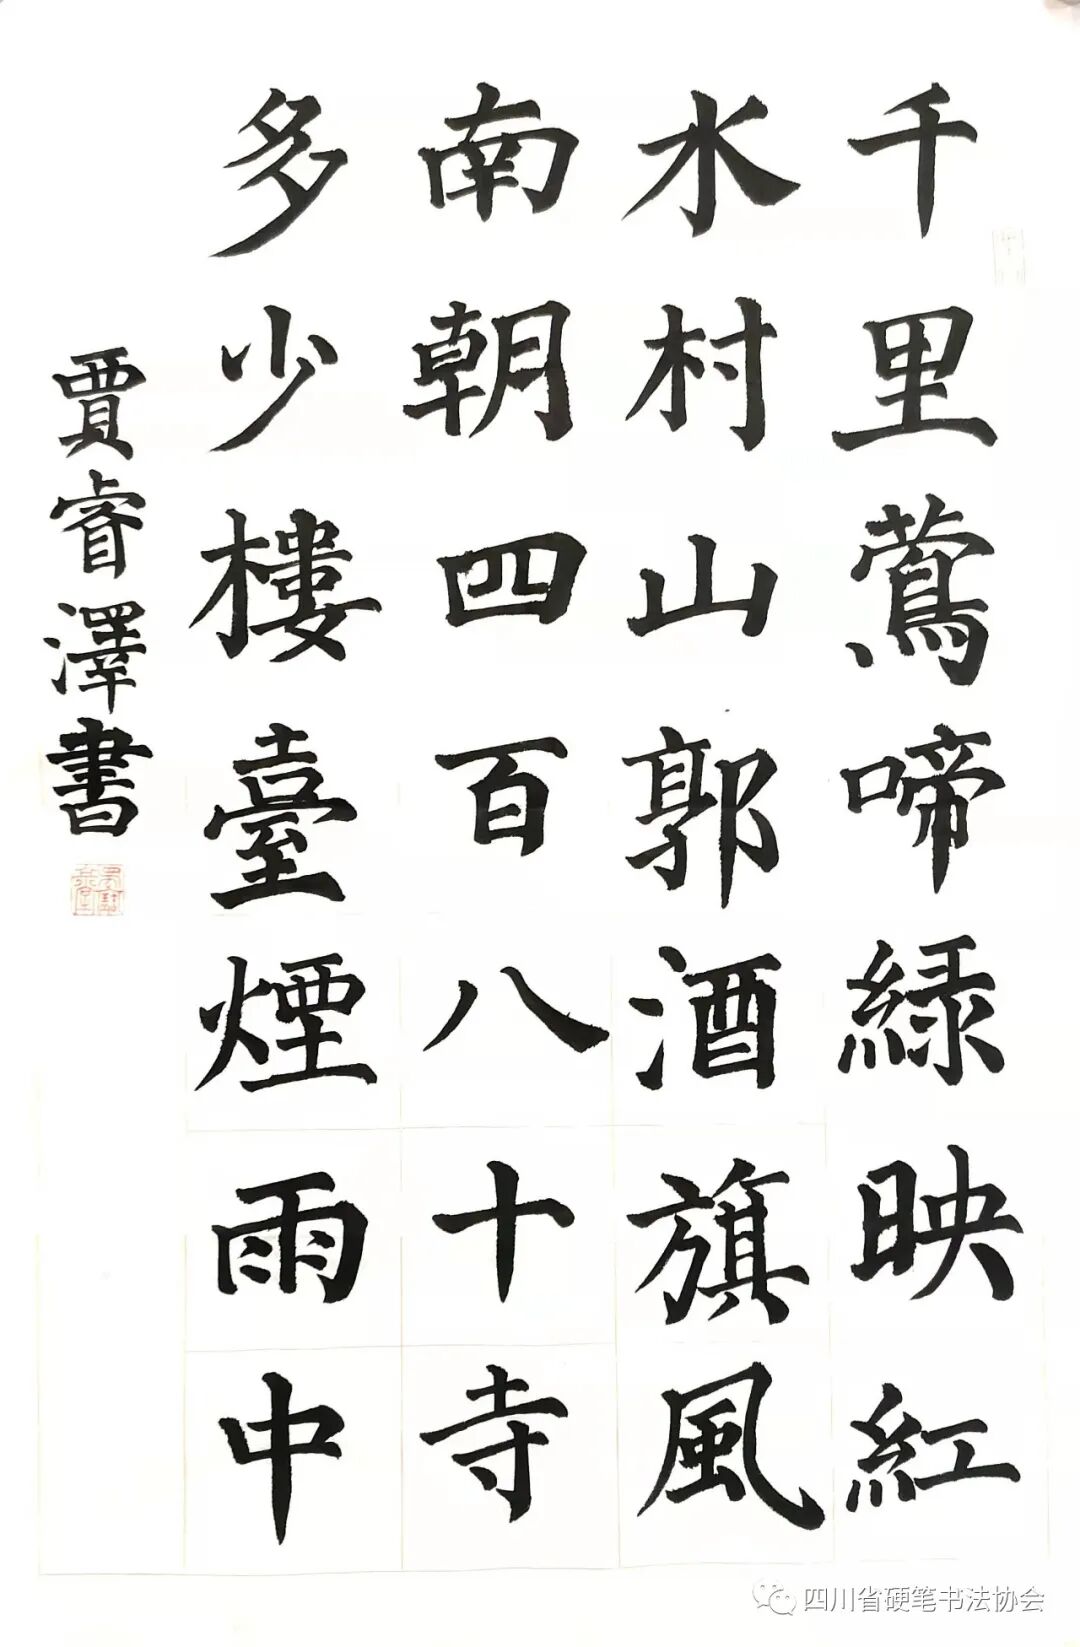 千里鶯啼緑映紅
水村山郭酒旗風
南朝四百八十寺
多少樓臺煙雨中
賈睿澤書
四川省硬笔书法协会